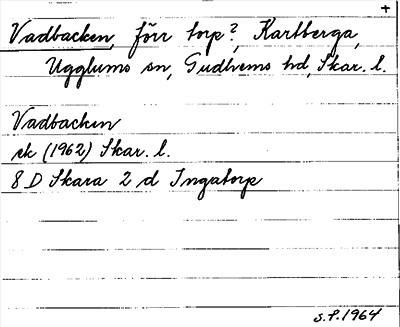 +
Vadbacken, förr torp?, Karlberga,
Ugglums sn, Gudhems hd, Skar. l.
Vadbacken
ek (1962) Skar. l.
8 D Skara 2 d Ingatorp
S.P. 1964